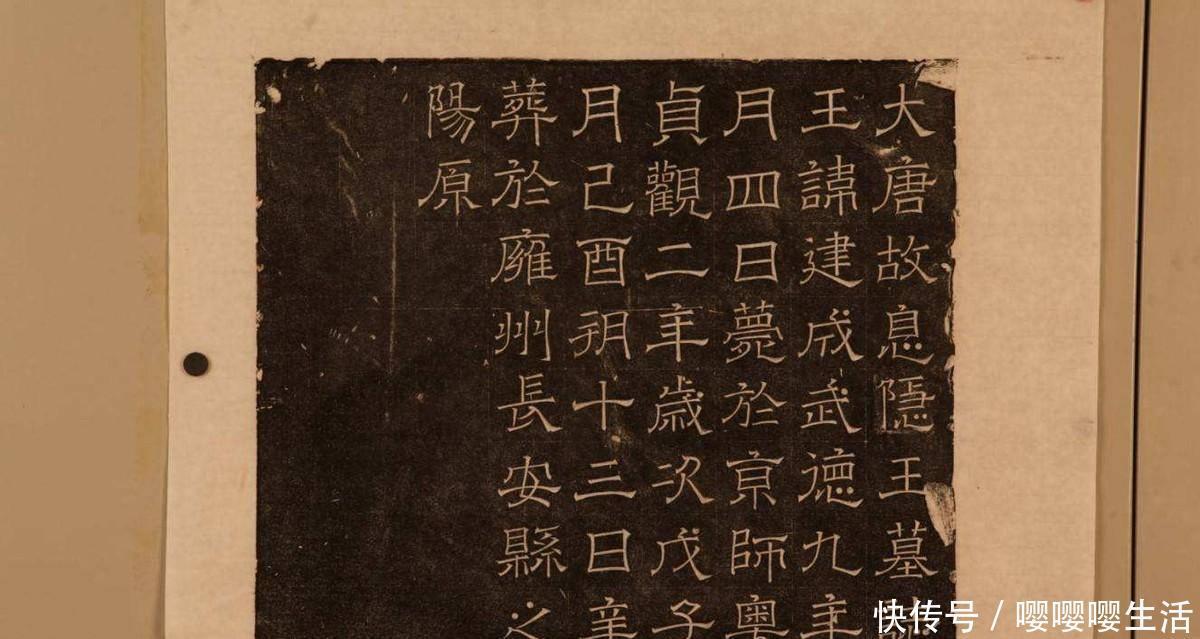 大唐故息隱王墓
王諱建成武德九年
月四日薨於京師粵
貞觀二年歲次戊子
月己酉朔十三日辛
葬於雍州長安縣之
陽原
快传号 / 嘤嘤嘤生活